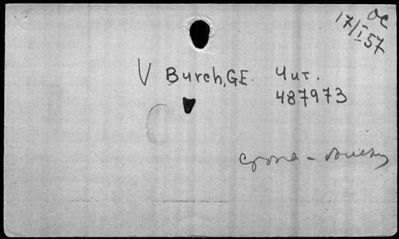 ОС
17/I 57
V Burch, G.E. Чит.
487973